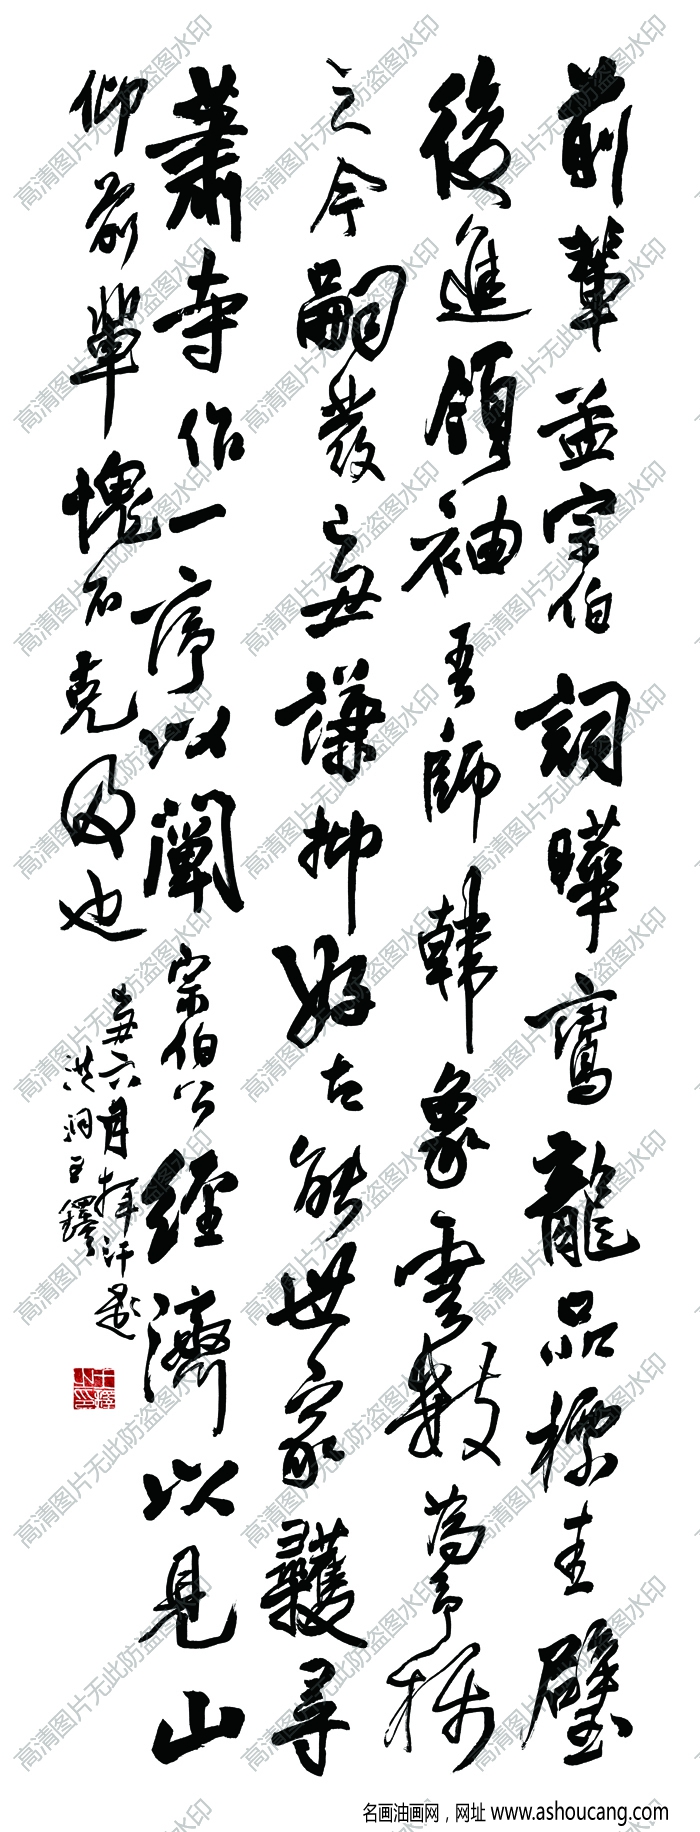 前輩孟宗伯詞曄鸞龍品標圭璧
後進領袖吾師韓象雲數為予稱
之今嗣發己丑謙抑好古能世家
尋蕭寺作一序以闡宗伯公經濟以見山
仰前輩愧不克及也
丑六月揮汗題
洪洞王鐸
名画油画网，网址 www.ashoucang.com
高清图片无此防盗图水印